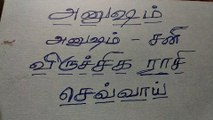 அனுஷம்
அனுஷம் - சனி
விருச்சிக ராசி
செவ்வாய்